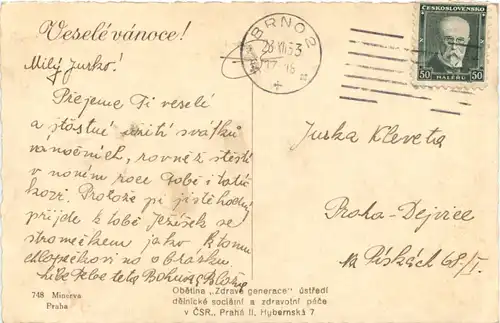 Veselé vánoce!
BRNO 2
23 XII 33
ČESKOSLOVENSKO
50 HALÉŘŮ 50
Milý Jurko!
Přejeme Ti veselé
a šťastné užití svátků
vánočních, rovněž štěstí
v novém roce Tobě i tatíč
kovi. Protože při jistě hodný
přijde k tobě Ježíšek se
stromečkem jako k tomu
chlapečkovi na obrázku.
líbá Tebe teta
Jurka Kleveta
Praha-Dejvice
Na Pískách 68/I.
748 Minerva
Praha
Obětina „Zdravé generace" ústředí
dělnické sociální a zdravotní péče
v ČSR., Praha II, Hybernská 7